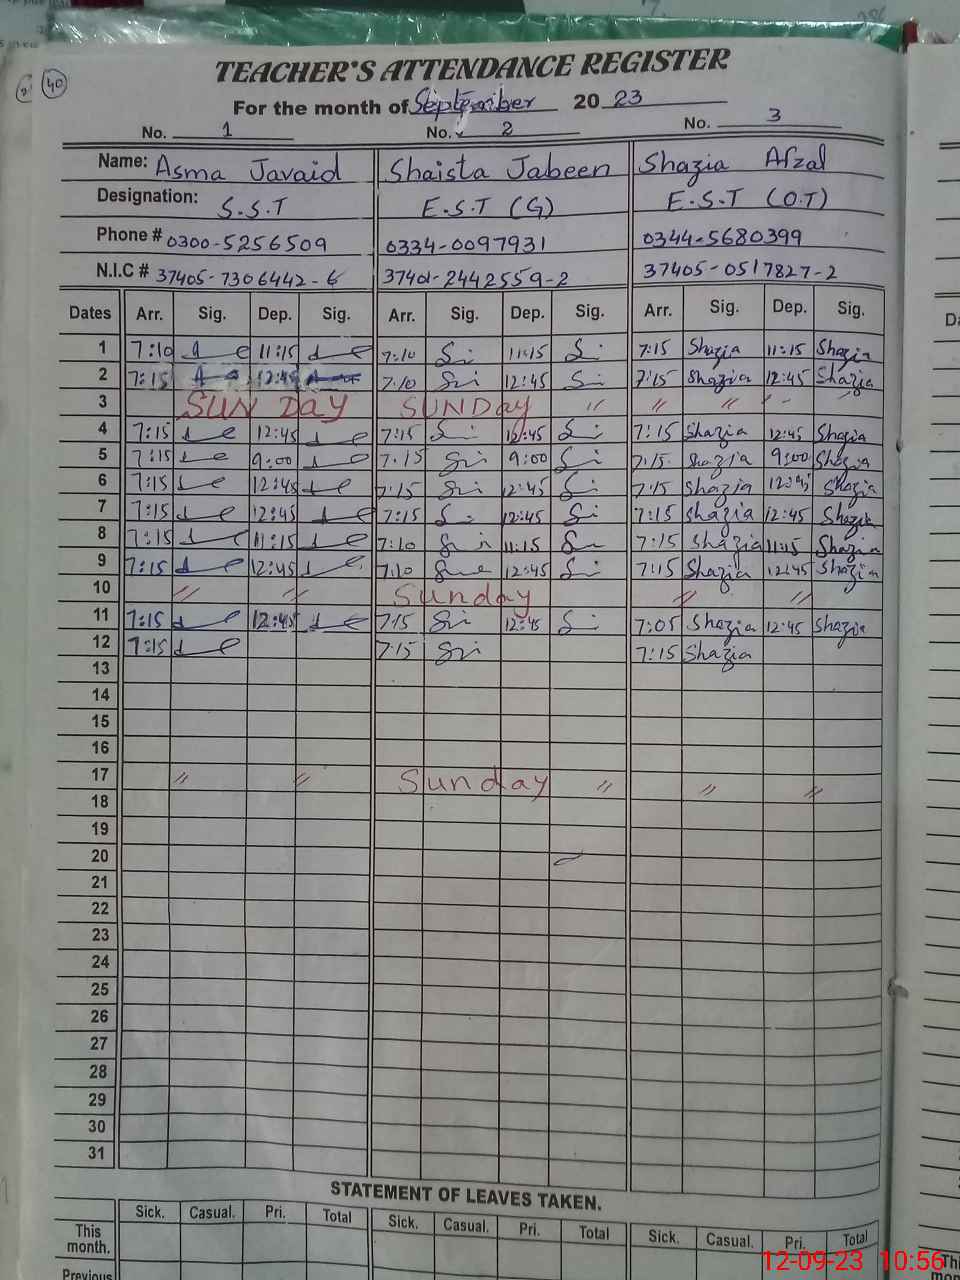 40
TEACHER'S ATTENDANCE REGISTER
For the month of September 20 23
No. 1 No. 2 No. 3
Name: Asma Javaid Shaista Jabeen Shazia Afzal
Designation: S.S.T E.S.T (G) E.S.T (O.T)
Phone # 0300-5256509 0334-0097931 0344-5680399
N.I.C # 37405-7306442-6 37401-2442559-2 37405-0517827-2
Dates Arr. Sig. Dep. Sig. Arr. Sig. Dep. Sig. Arr. Sig. Dep. Sig.
1 7:10 11:15 7:10 11:15 7:15 Shazia 11:15 Shazia
2 7:15 12:45 7:10 12:45 7:15 Shazia 12:45 Shazia
3 SUNDAY SUNDAY " " " " "
4 7:15 12:45 7:15 12:45 7:15 Shazia 12:45 Shazia
5 7:15 9:00 7:15 9:00 7:15 Shazia 9:00 Shazia
6 7:15 12:45 7:15 12:45 7:15 Shazia 12:45 Shazia
7 7:15 12:45 7:15 12:45 7:15 Shazia 12:45 Shazia
8 7:15 11:15 7:10 11:15 7:15 Shazia 11:15 Shazia
9 7:15 12:45 7:10 12:45 7:15 Shazia 12:45 Shazia
10 " " Sunday " "
11 7:15 12:45 7:15 12:45 7:05 Shazia 12:45 Shazia
12 7:15 7:15 7:15 Shazia
13
14
15
16
17 " " Sunday " " "
18
19
20
21
22
23
24
25
26
27
28
29
30
31
STATEMENT OF LEAVES TAKEN.
Sick. Casual. Pri. Total Sick. Casual. Pri. Total Sick. Casual. Pri. Total
This
month.
Previous
12-09-23 10:56